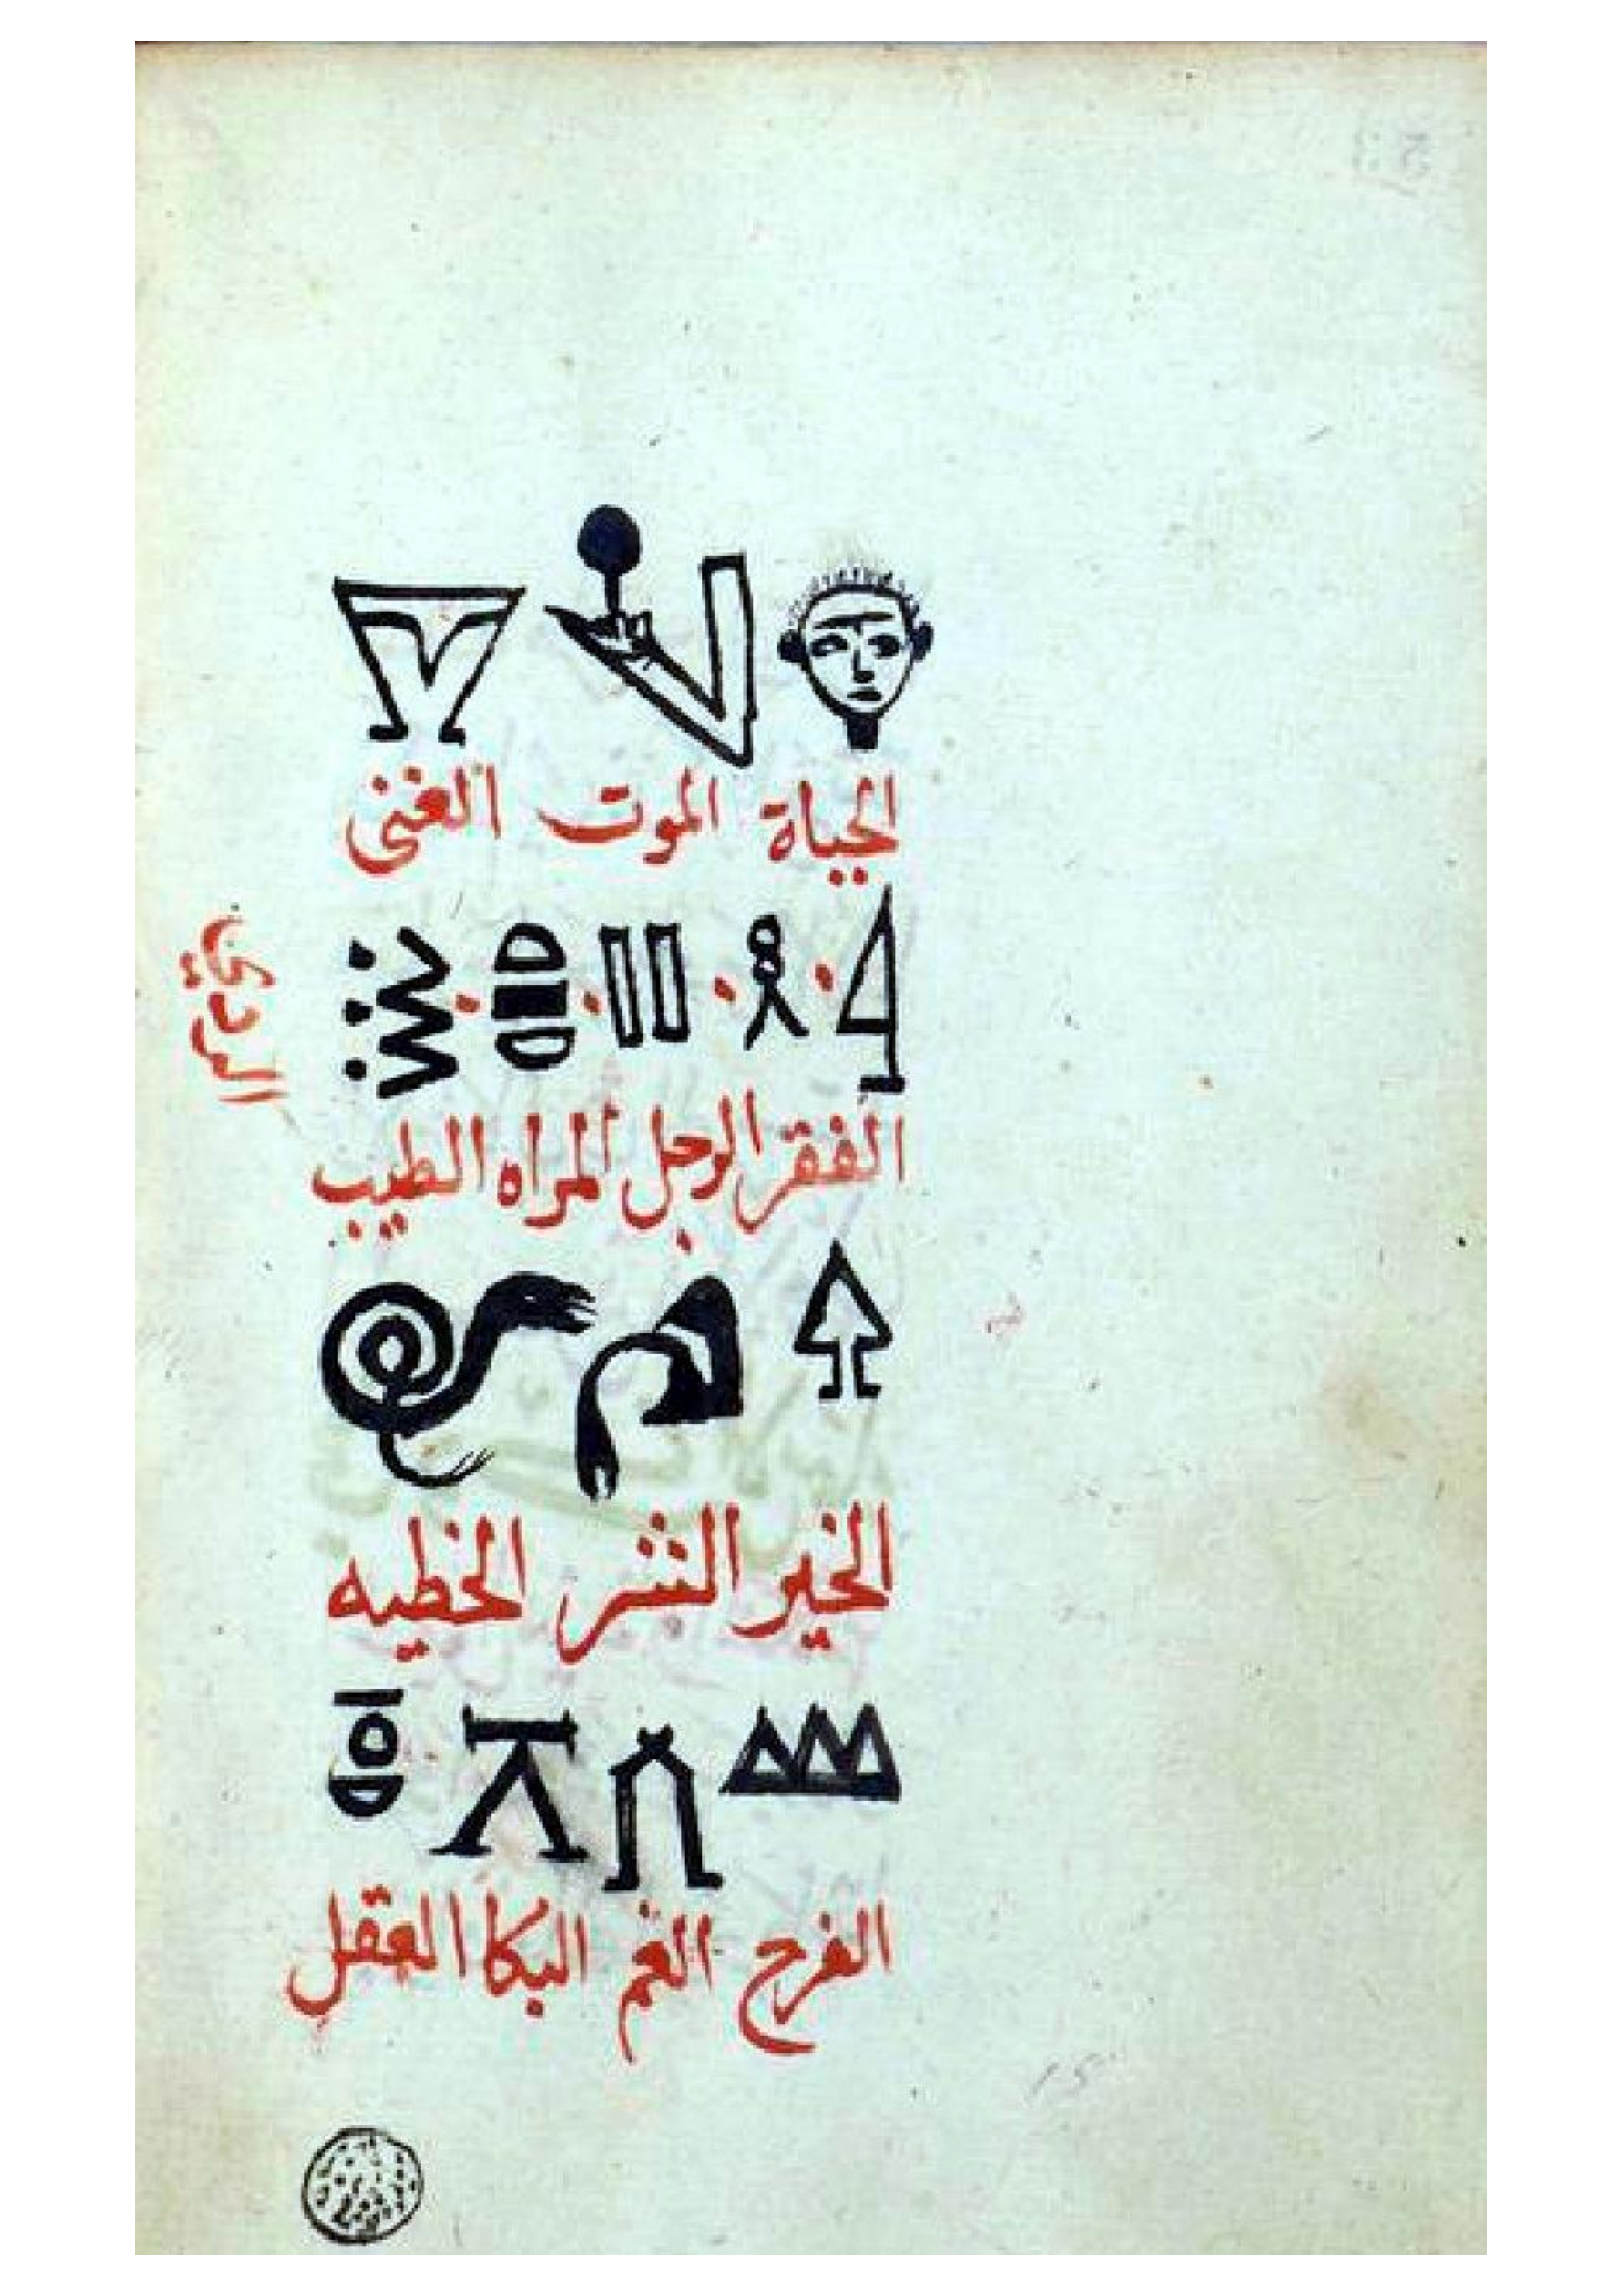 الحياة الموت الغنى
الفقر الرجل المراه الطيب
الردي
الخير الشر الخطيه
الفرح الغم البكا العقل